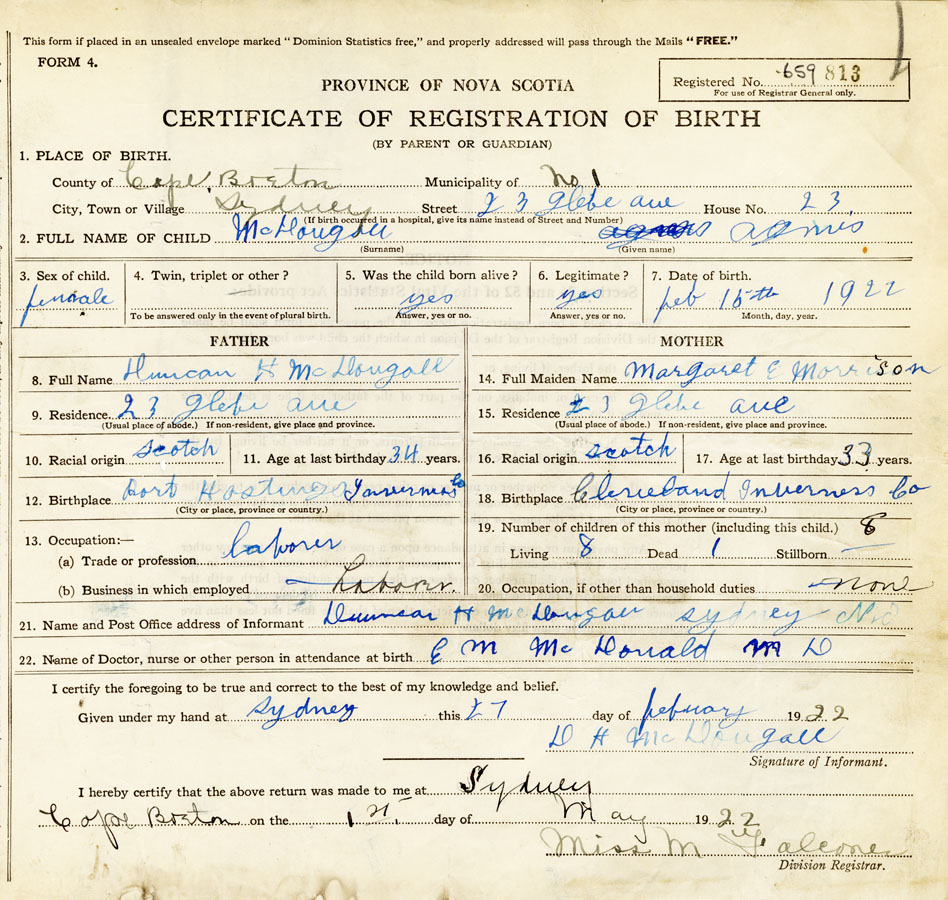 This form if placed in an unsealed envelope marked "Dominion Statistics free," and properly addressed will pass through the Mails "FREE."
FORM 4.
Registered No. 659 813
For use of Registrar General only.
PROVINCE OF NOVA SCOTIA
CERTIFICATE OF REGISTRATION OF BIRTH
(BY PARENT OR GUARDIAN)
1. PLACE OF BIRTH.
County of Cape Breton Municipality of No 1
City, Town or Village Sydney Street 23 Glebe ave House No. 23
(If birth occurred in a hospital, give its name instead of Street and Number)
2. FULL NAME OF CHILD McDougall
(Surname) (Given name)
3. Sex of child. 4. Twin, triplet or other? 5. Was the child born alive? 6. Legitimate? 7. Date of birth.
female yes yes feb 15th 1922
To be answered only in the event of plural birth. Answer, yes or no. Answer, yes or no. Month, day, year.
FATHER MOTHER
8. Full Name Duncan H McDougall 14. Full Maiden Name Margaret E Morrison
9. Residence 23 Glebe ave 15. Residence 23 Glebe ave
(Usual place of abode.) If non-resident, give place and province. (Usual place of abode.) If non-resident, give place and province.
10. Racial origin scotch 11. Age at last birthday 34 years. 16. Racial origin scotch 17. Age at last birthday 33 years.
12. Birthplace Port Inverness Co 18. Birthplace Inverness Co
(City or place, province or country.) (City or place, province or country.)
13. Occupation:— 19. Number of children of this mother (including this child.) 8
(a) Trade or profession laborer Living 8 Dead 1 Stillborn —
(b) Business in which employed Labour. 20. Occupation, if other than household duties none
21. Name and Post Office address of Informant Duncan H McDougall Sydney NS
22. Name of Doctor, nurse or other person in attendance at birth E M McDonald M D
I certify the foregoing to be true and correct to the best of my knowledge and belief.
Given under my hand at Sydney this 27 day of february 1922
D H McDougall
Signature of Informant.
I hereby certify that the above return was made to me at Sydney
Cape Breton on the 1st. day of May 1922
Miss M Falconer
Division Registrar.